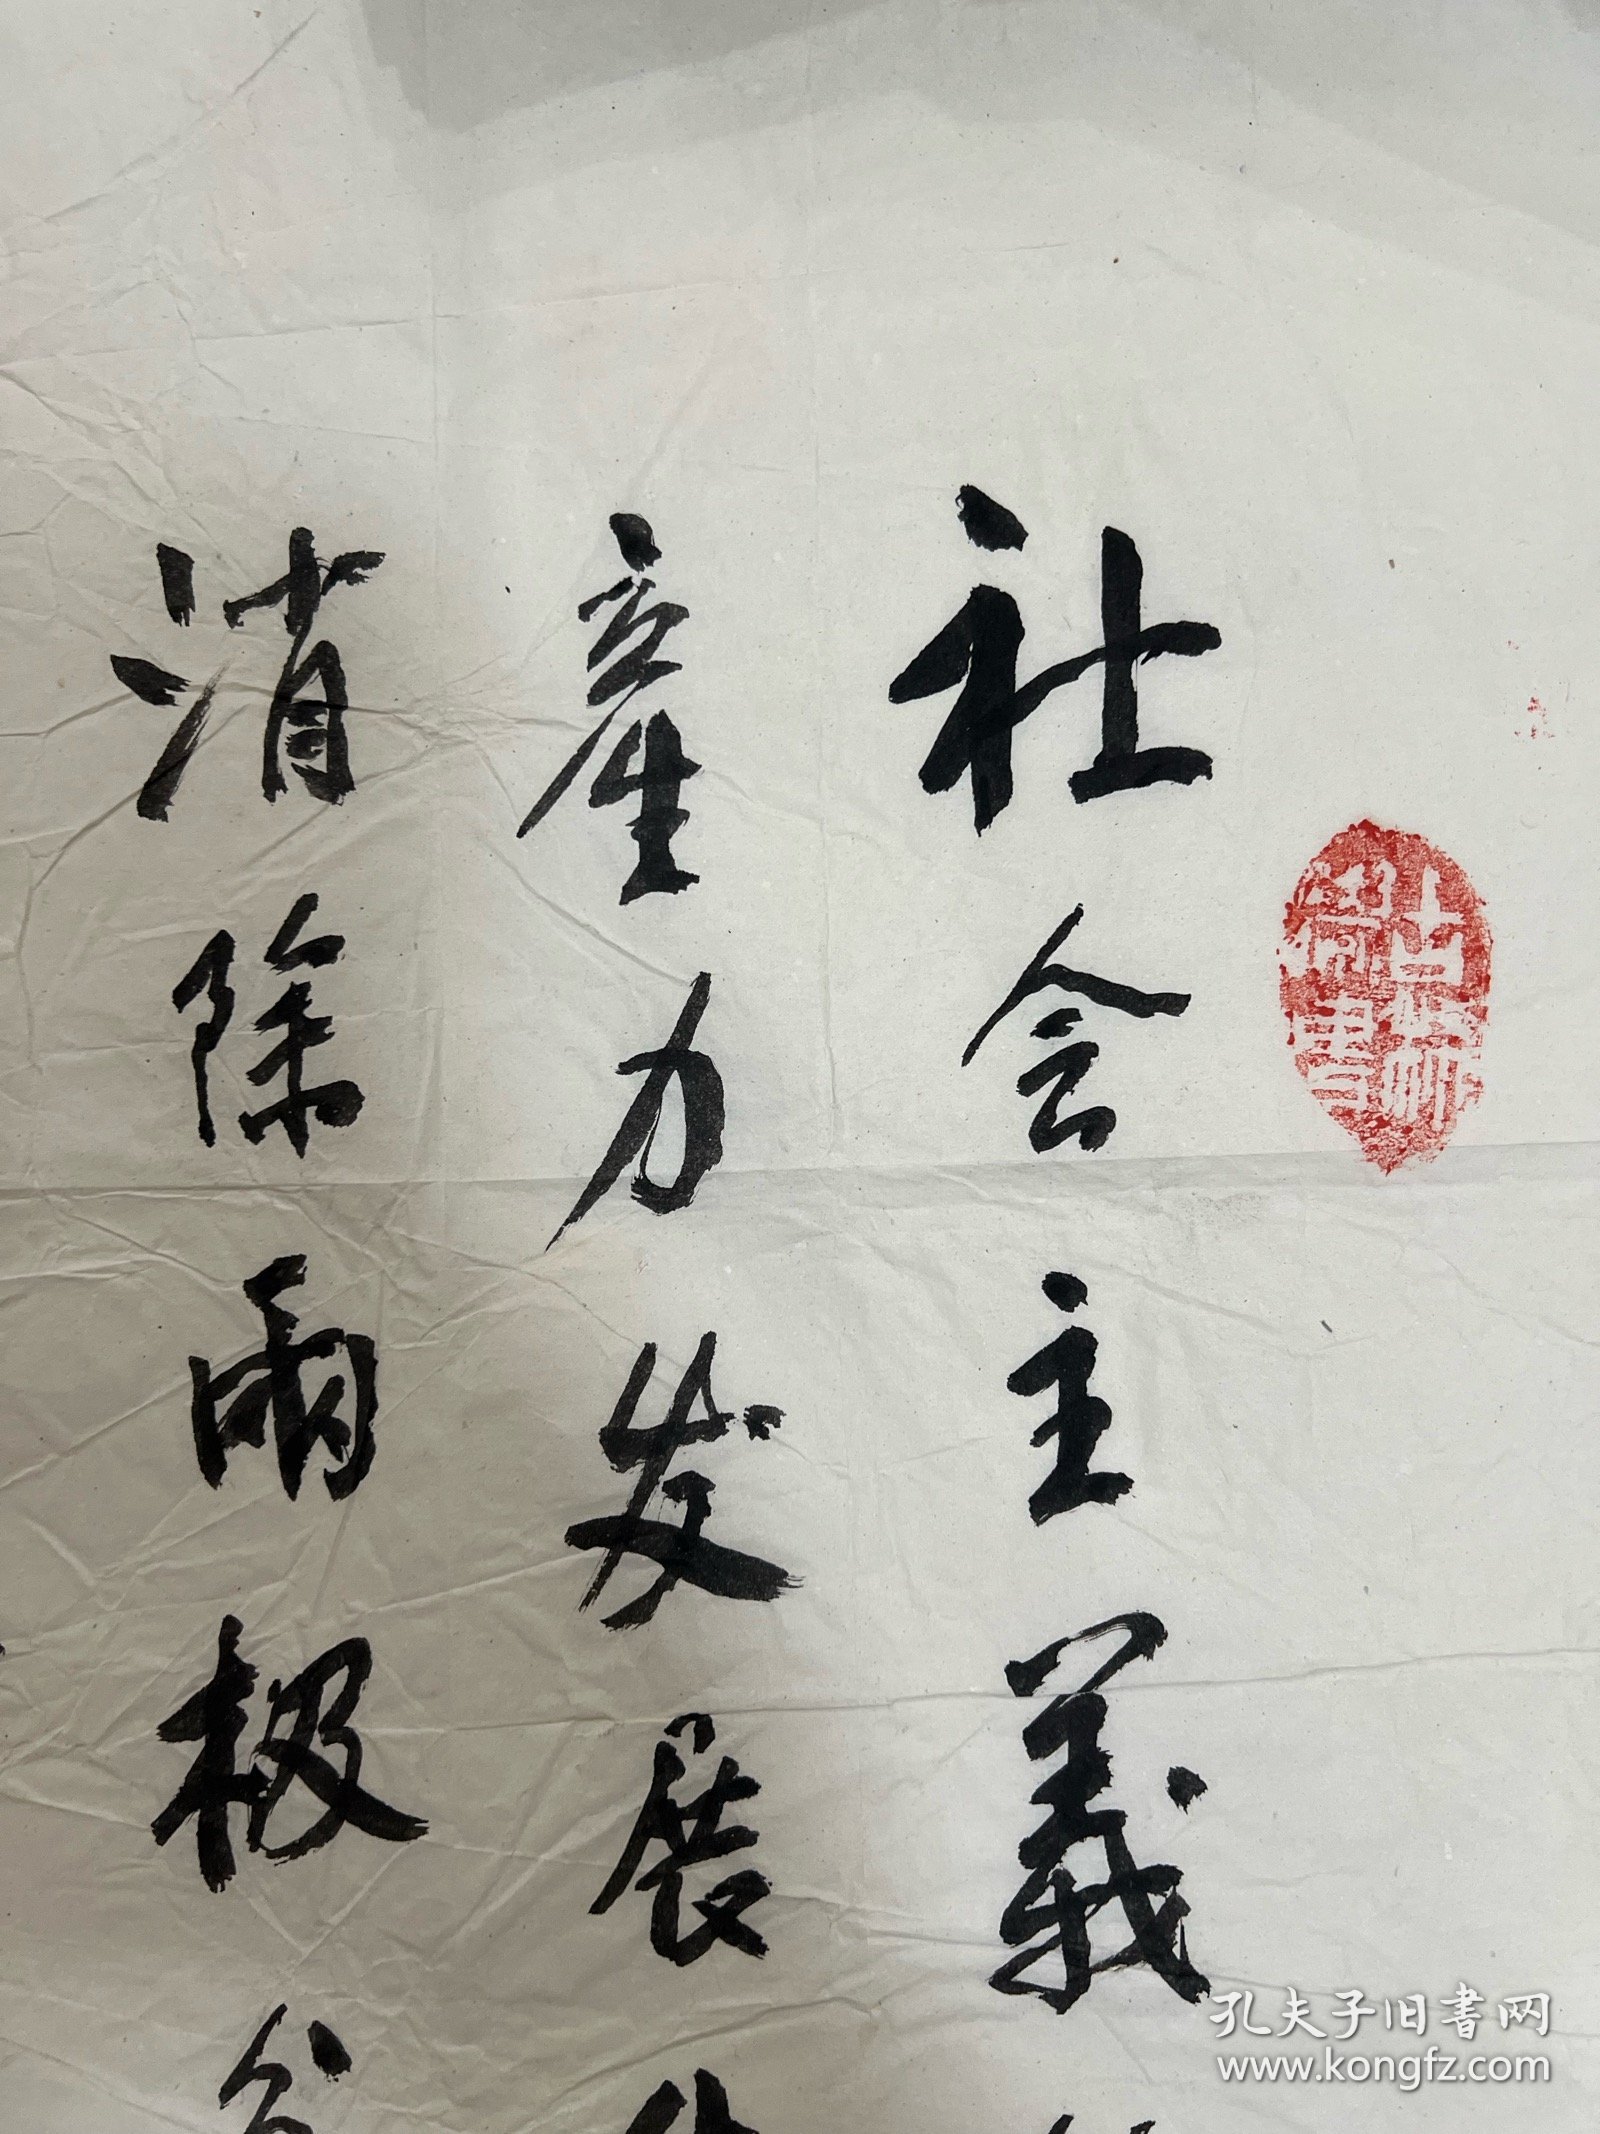 社会主義
產力发展
消除兩极分
孔夫子旧书网
www.kongfz.com